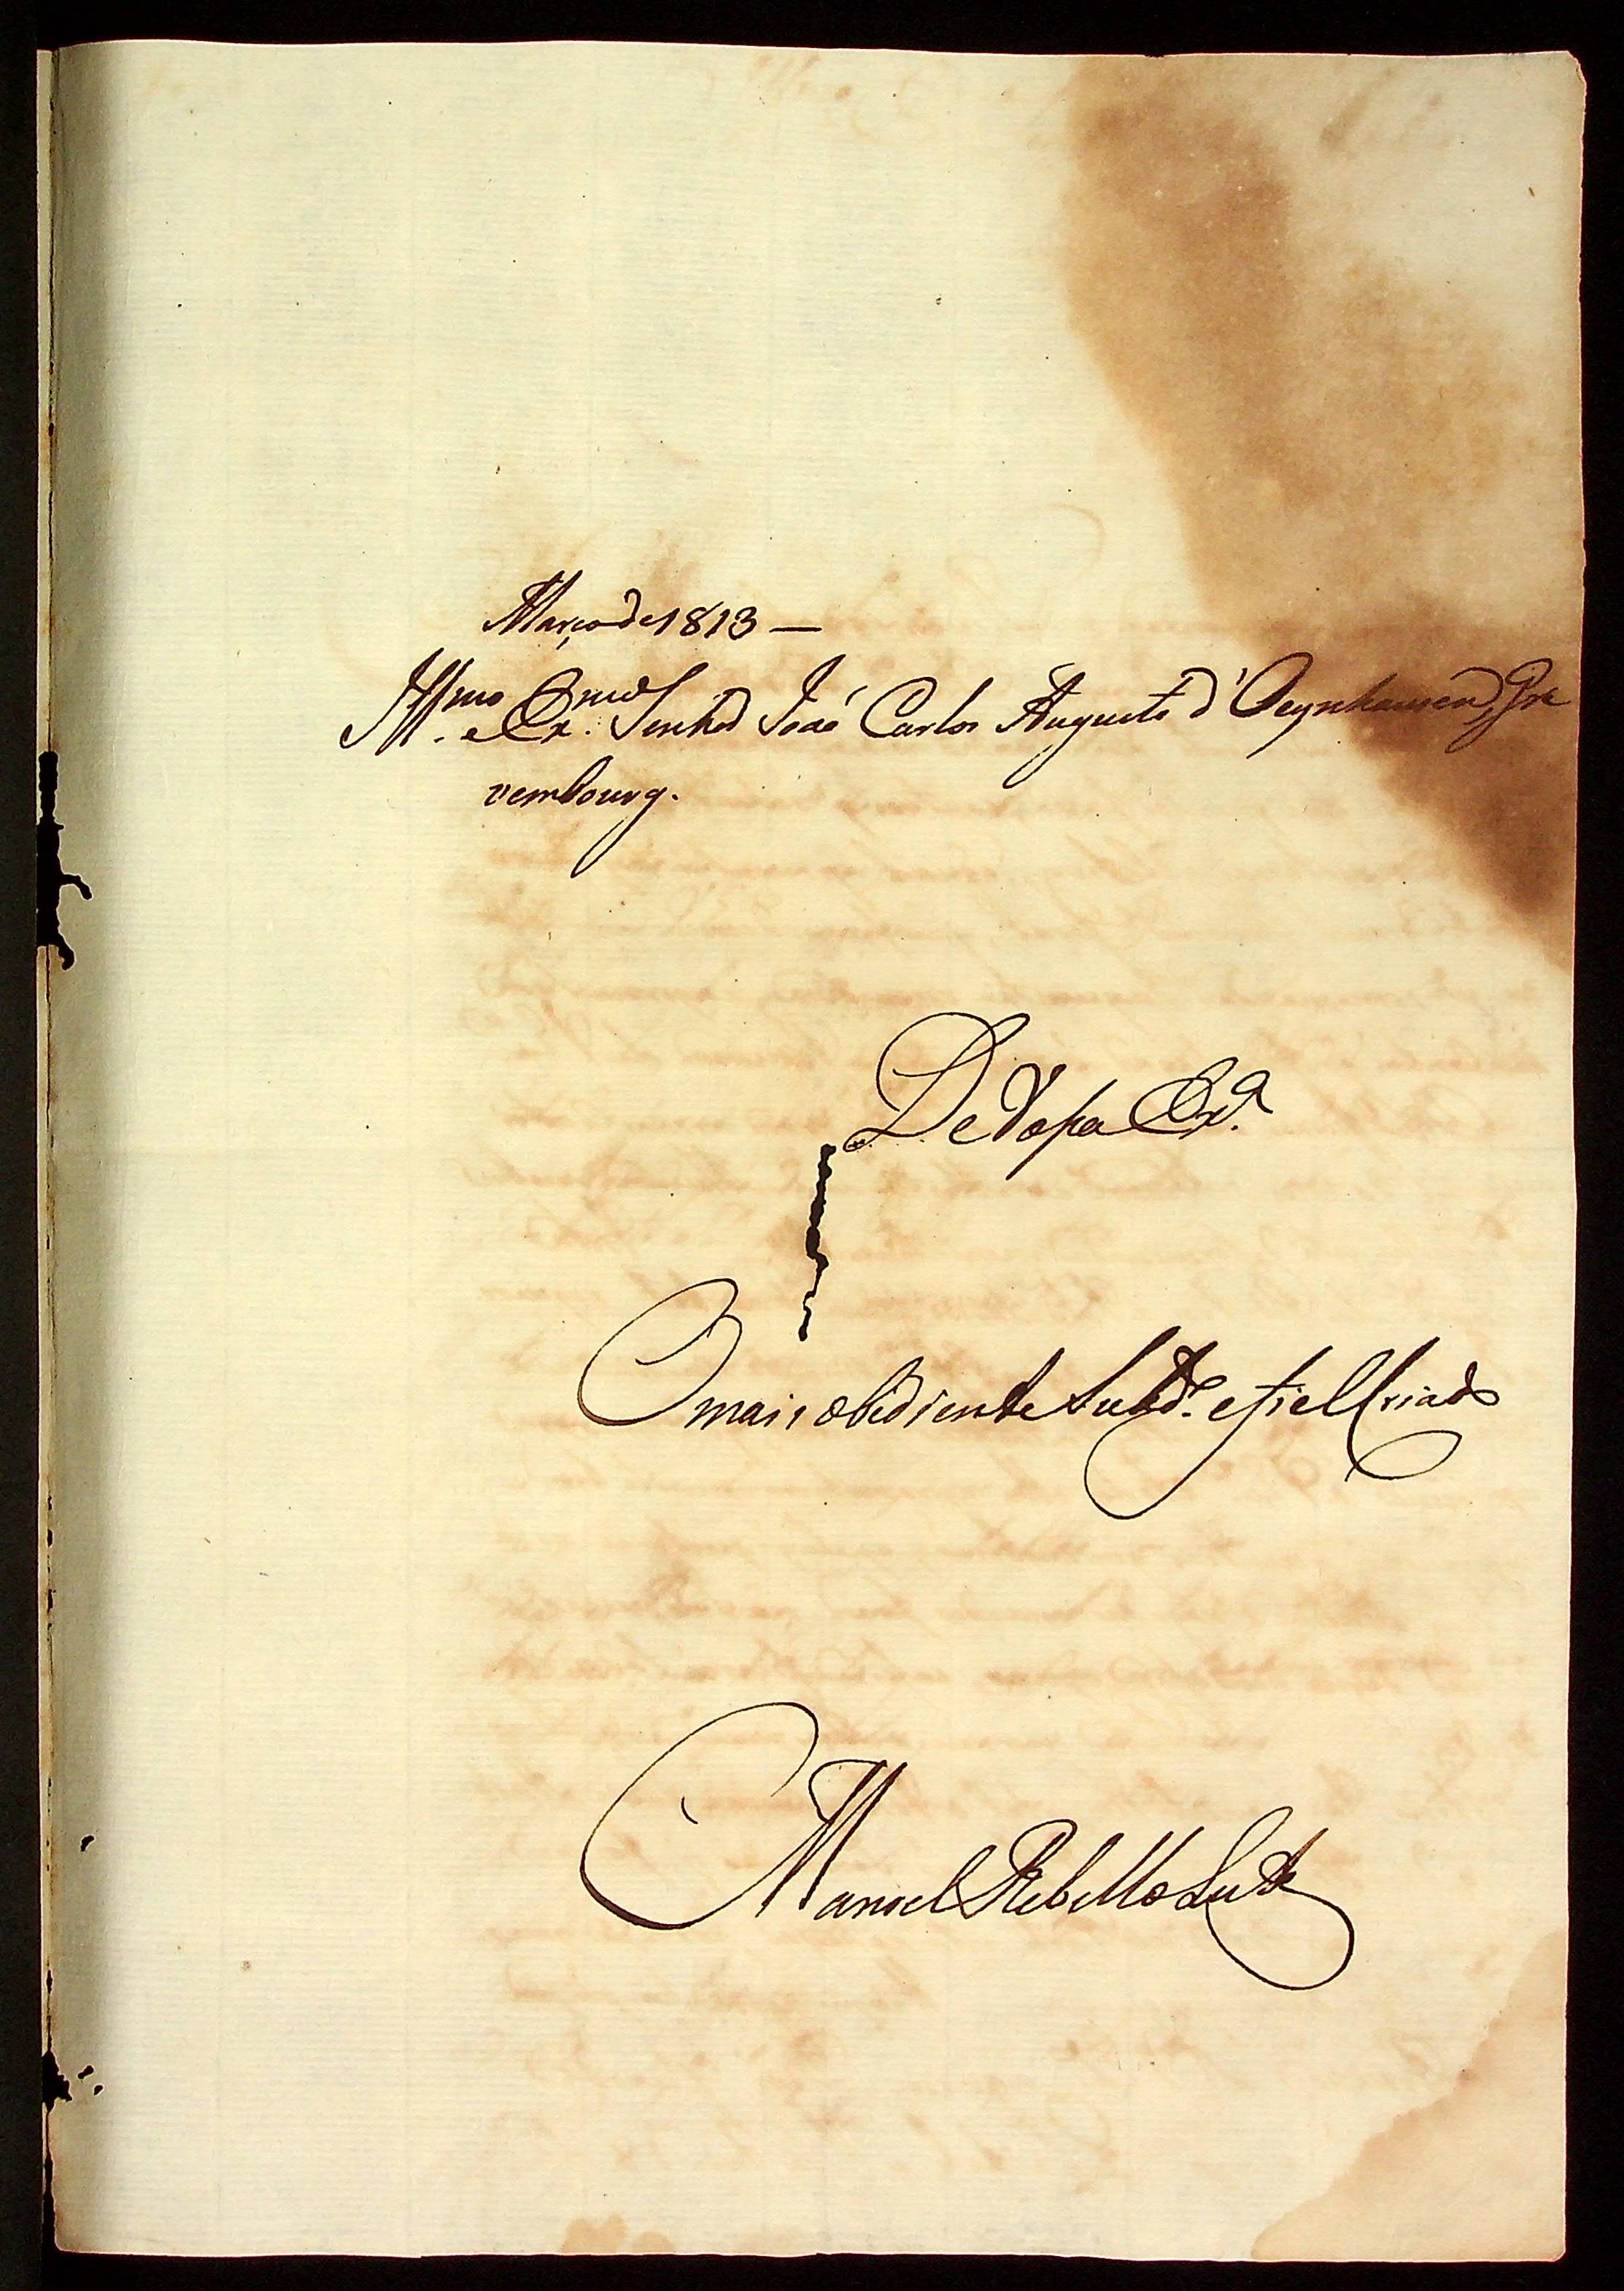 Março de 1813 —
Illmo. e Exmo. Senhor João Carlos Augusto d'Oeynhausen, Gre
vembourg.
De Vossa Exa.
O mais obediente Subdo. e fiel Criado
Manoel Rebello